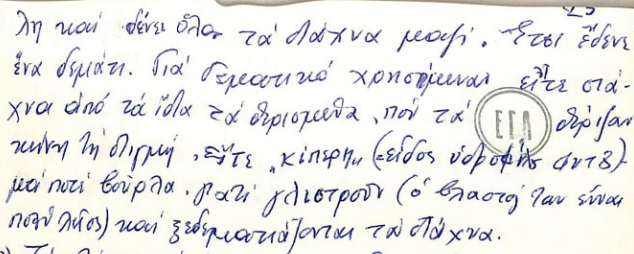 λη καί δένει όλα τά στάχυα μαζί. Ἔτσι ἔδενε
ἕνα δεμάτι. Γιά δεματικό χρησιμευαν εἴτε στά-
χυα ἀπό τά ἴδια τά θερισμένα, πού τά θέριζαν
κείνη τή στιγμή, εἴτε "κίπερη" (εἶδος ὑδροφίλης
μα ποτέ βούρλα. γιατί γλιστροῦν (ὁ βλαστός των εἶναι
πολύ λεῖος) καί ξεδεματιάζονται τά στάχυα.
ΕΓΛ